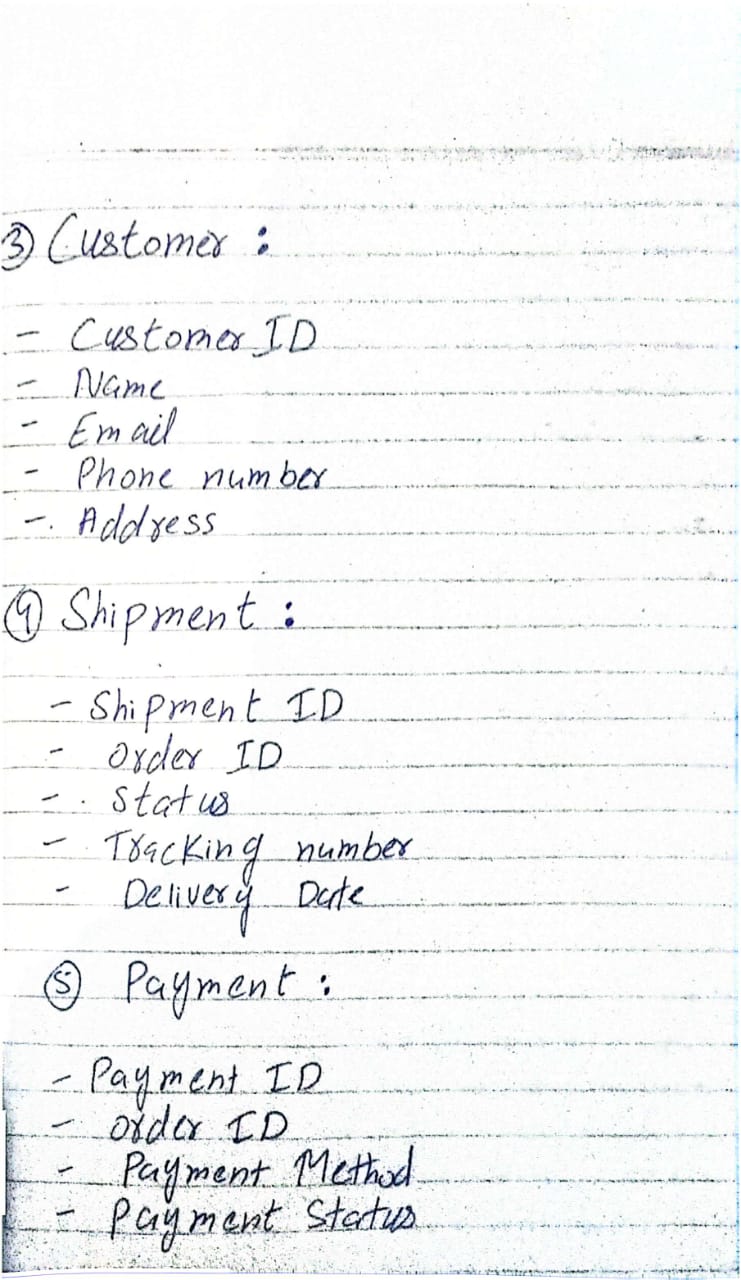 ③ Customer :
- Customer ID
- Name
- Email
- Phone number
- Address
④ Shipment :
- Shipment ID
- Order ID
- Status
- Tracking number
- Delivery Date
⑤ Payment :
- Payment ID
- Order ID
- Payment Method
- Payment Status